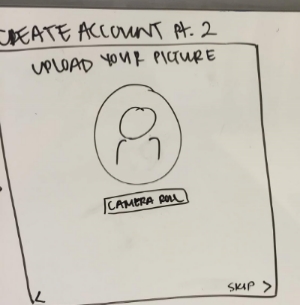 CREATE ACCOUNT Pt. 2
UPLOAD YOUR PICTURE
CAMERA ROLL
< SKIP >